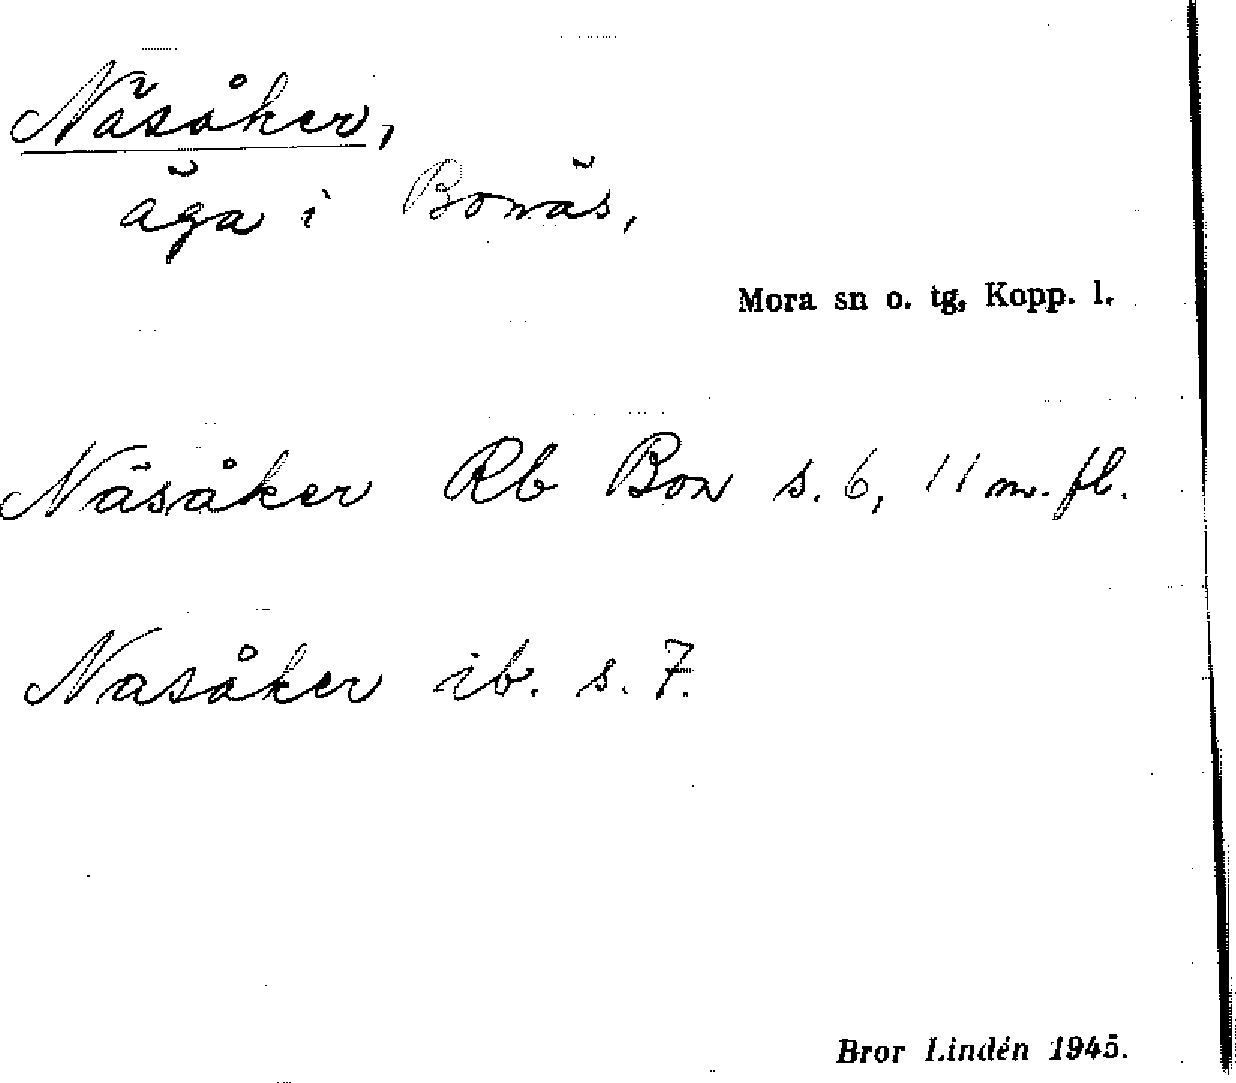 Näsåker,
äga i Bonäs,
Mora sn o. tg, Kopp. l.
Näsåker Rb Bon s. 6, 11 m. fl.
Nasåker ib. s. 7.
Bror Lindén 1945.